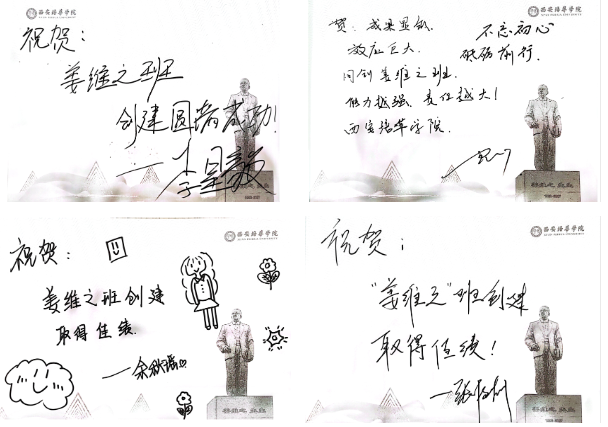 西安培华学院
祝贺：
姜维之班
创建圆满成功！
西安培华学院
贺：成果显赫
效应巨大
同创姜维之班
能力越强、责任越大！
西安培华学院
不忘初心
砥砺前行
西安培华学院
祝贺：
姜维之班创建
取得佳绩
西安培华学院
祝贺：
"姜维之"班创建
取得佳绩！